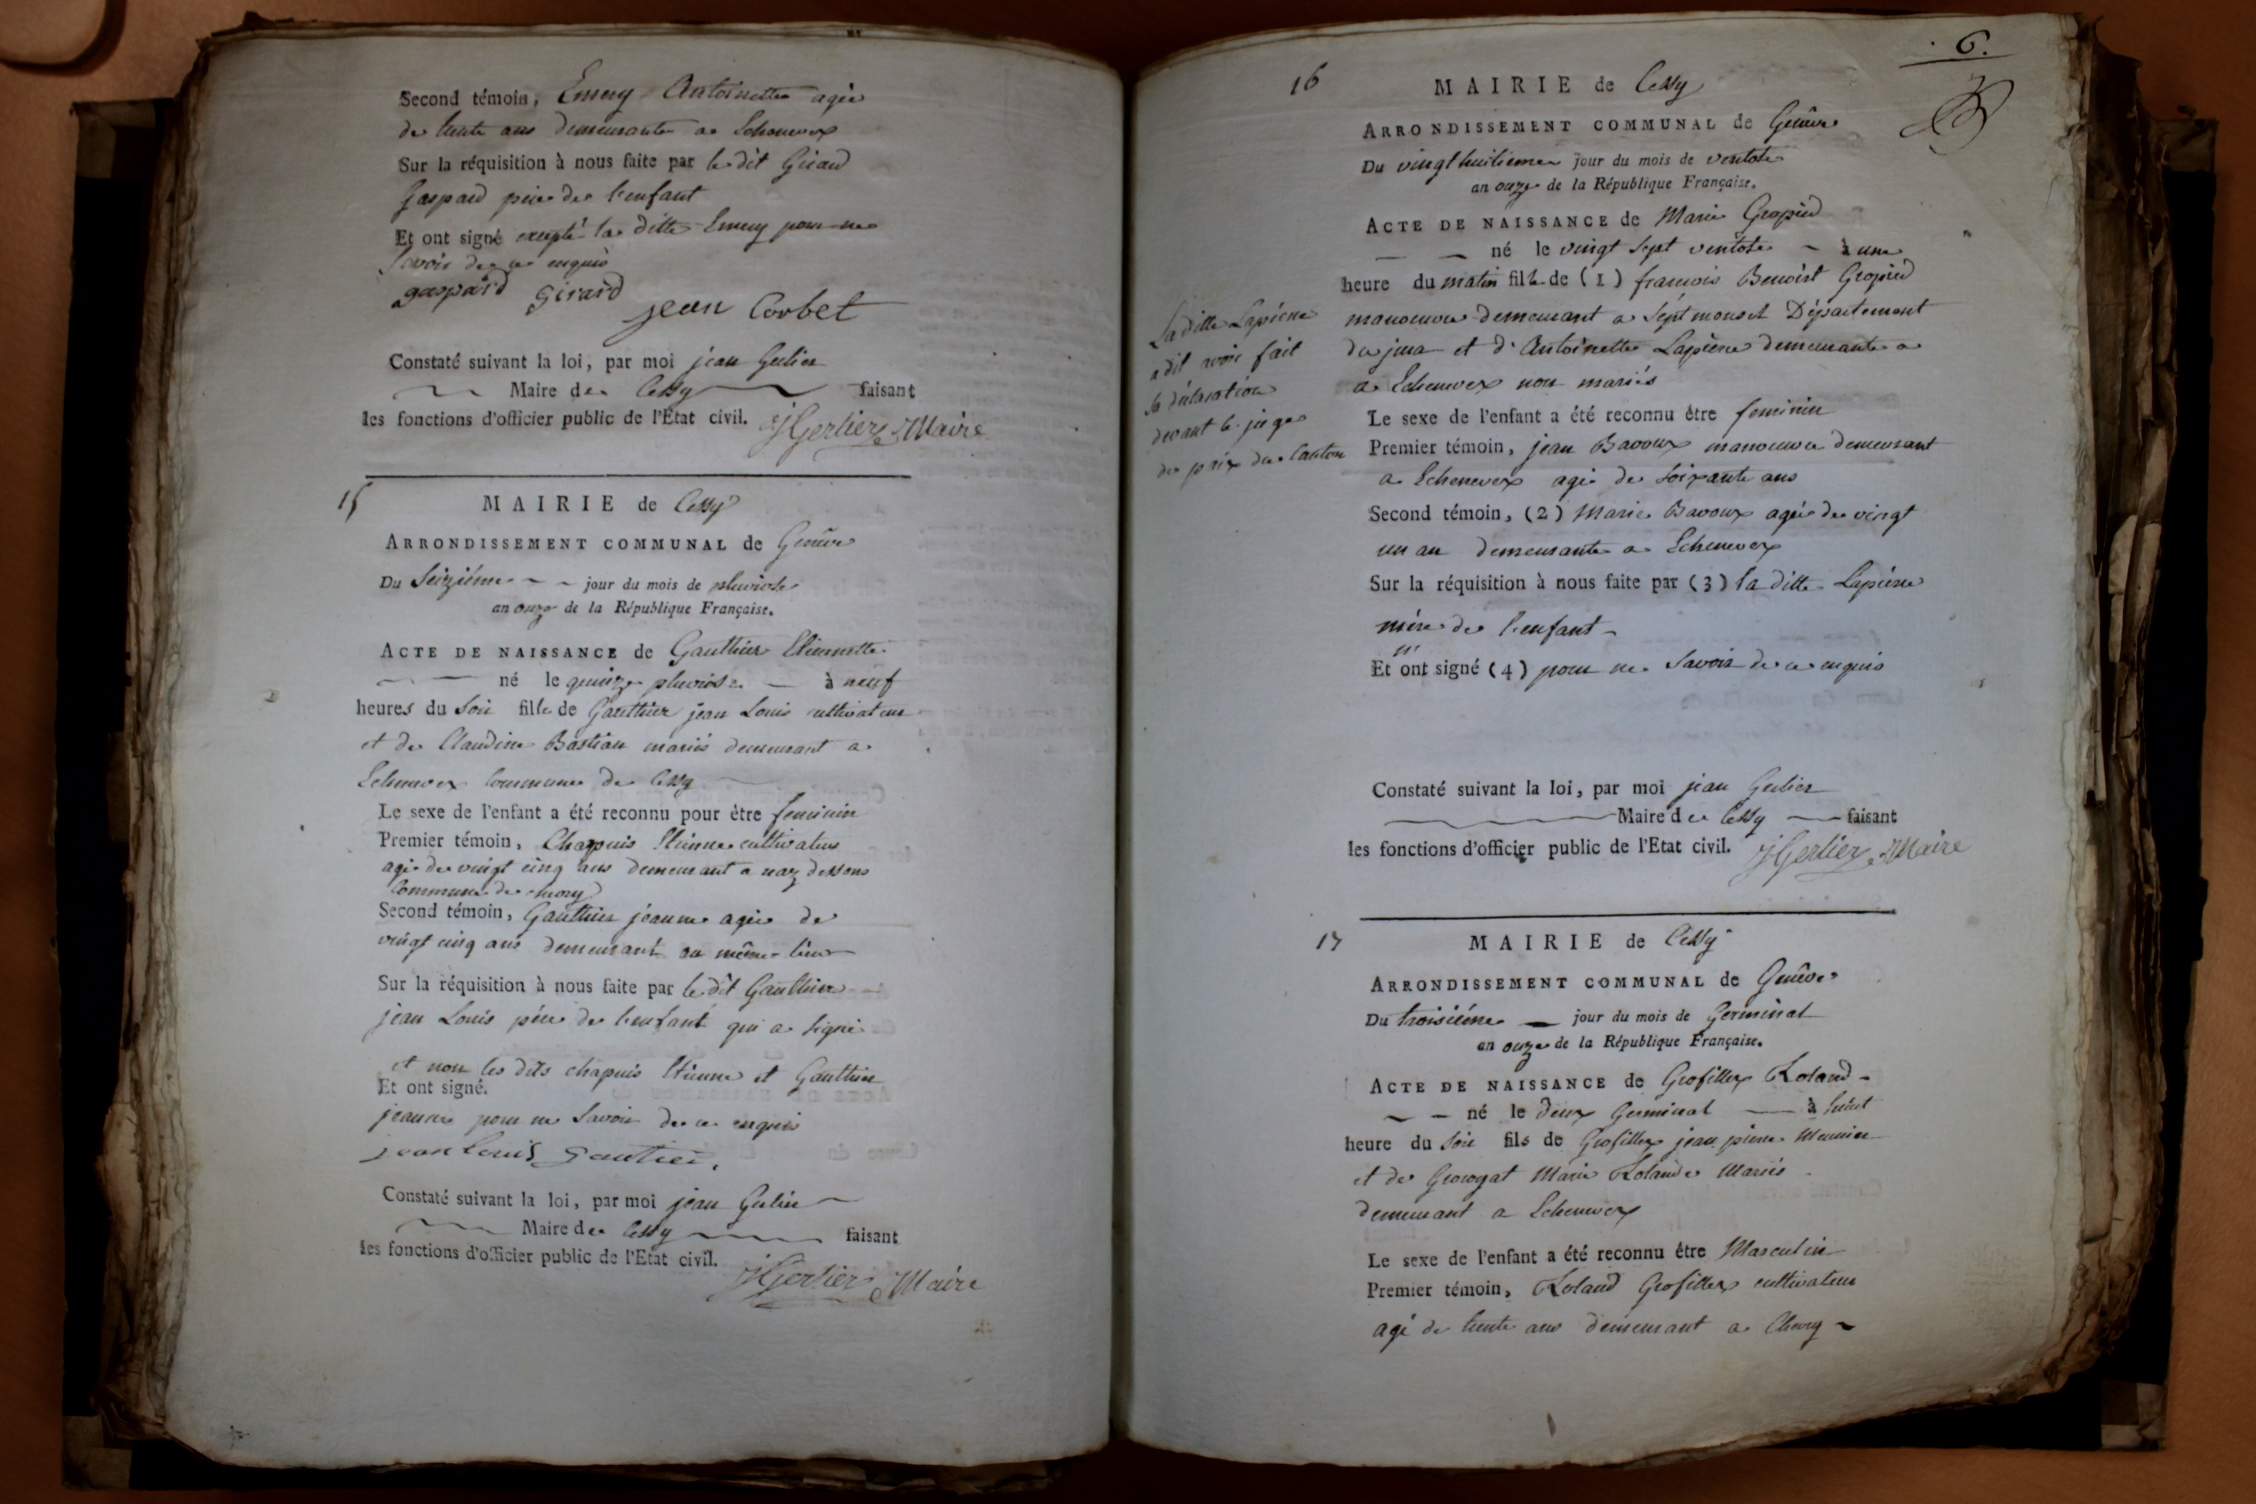 Second témoin, Emery Antoinette agée
de trente ans demeurante a Echenevex
Sur la réquisition à nous faite par le dit Girard
Gaspard père de l'enfant
Et ont signé excepté la ditte Emery pour ne
Savoir de ce enquis
gaspard Girard
jean Corbet
Constaté suivant la loi, par moi jean Gerlier
Maire de Cessy faisant
les fonctions d'officier public de l'État civil. JGerlier Maire
15
MAIRIE de Cessy
ARRONDISSEMENT COMMUNAL de Genève
Du Seizième jour du mois de pluviose
an onze de la République Française.
ACTE DE NAISSANCE de Gauthier Etiennette
né le quinze pluviose à neuf
heures du Soir fille de Gauthier jean Louis cultivateur
et de Claudine Bastian mariés demeurant a
Echenevex Commune de Cessy
Le sexe de l'enfant a été reconnu pour être feminin
Premier témoin, Chapuis Etienne cultivateur
agé de vingt cinq ans demeurant a naz dessous
Commune de
Second témoin, Gauthier jeanne agée de
vingt cinq ans demeurant au même lieu
Sur la réquisition à nous faite par le dit Gauthier
jean Louis père de l'enfant qui a signé
et non les dits chapuis Etienne et Gauthier
Et ont signé.
jeanne pour ne Savoir de ce enquis
jean Louis Gautier.
Constaté suivant la loi, par moi jean Gerlier
Maire de Cessy faisant
les fonctions d'officier public de l'Etat civil.
JGerlier Maire
. 6.
16
MAIRIE de Cessy
ARRONDISSEMENT COMMUNAL de Genève
Du vingt huitieme jour du mois de ventose
an onze de la République Française.
ACTE DE NAISSANCE de Marie Gropied
né le vingt Sept ventose à une
heure du matin fille de (1) francois Benoist Gropied
manoeuvre demeurant a Septmoncel Département
du jura et d'Antoinette Lapierre demeurante a
a Echenevex non mariés
La ditte Lapierre
a dit avoir fait
sa déclaration
devant le juge
de paix du Canton
Le sexe de l'enfant a été reconnu être feminin
Premier témoin, jean Bavoux manoeuvre demeurant
a Echenevex agé de Soixante ans
Second témoin, (2) Marie Bavoux agée de vingt
un an demeurante a Echenevex
Sur la réquisition à nous faite par (3) la ditte Lapierre
mère de l'enfant
n'
Et ont signé (4) pour ne Savoir de ce enquis
Constaté suivant la loi, par moi jean Gerlier
Maire de Cessy faisant
les fonctions d'officier public de l'Etat civil. JGerlier Maire
17
MAIRIE de Cessy
ARRONDISSEMENT COMMUNAL de Genêve
Du troisième jour du mois de Germinal
an onze de la République Française.
ACTE DE NAISSANCE de Grosfillex Roland
né le deux Germinal à huit
heure du Soir fils de Grosfillex jean pierre Meunier
et de Marie Rolande Mariés
demeurant a Echenevex
Le sexe de l'enfant a été reconnu être Masculin
Premier témoin, Roland Grosfillex cultivateur
agé de trente ans demeurant a Chevry